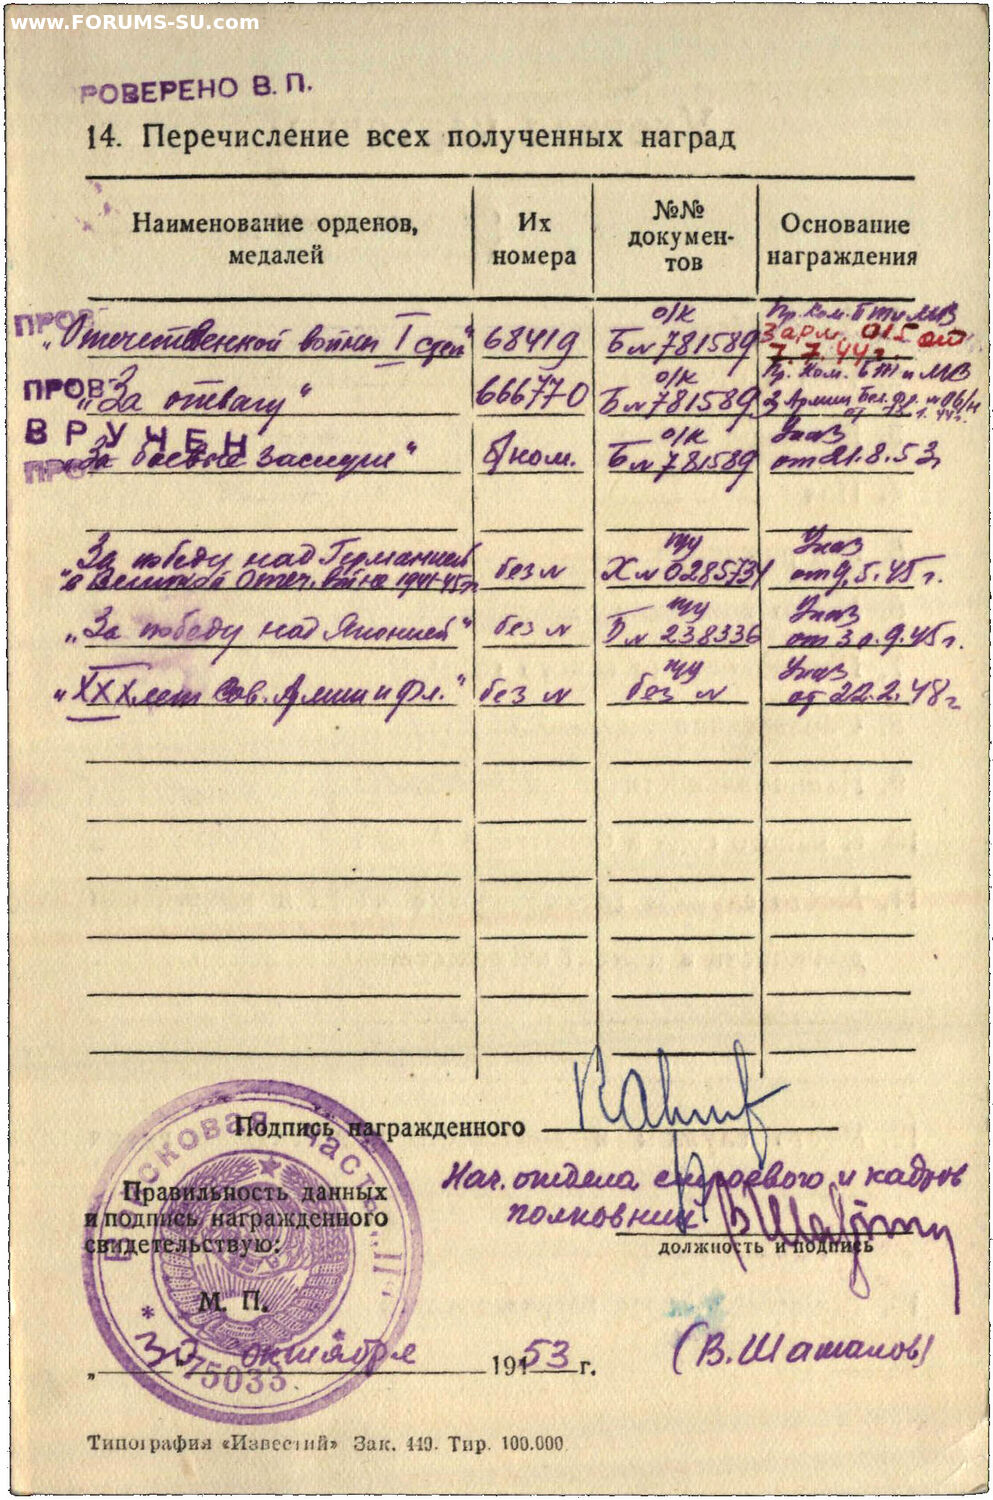 www.FORUMS-SU.com
РОВЕРЕНО В. П.
14. Перечисление всех полученных наград
Наименование орденов, медалей
Их номера
№№ докумен-тов
Основание награждения
ПРОВ
„Отечественной войны I степ“ 68419 о/к Б№781589 Пр. Ком. БТ и МВ 3 арм. 015 от 7.7.44г.
ПРОВ
„За отвагу“ 666770 о/к Б№781589 Пр. Ком. БТ и МВ 3 Армии Бел. фр. №06/н от
ВРУЧЕН
ПРО
„За боевые заслуги“ о/к Б№781589 Указ от 21.8.53
„За победу над Германией в Великой Отеч. войне 1941-45гг без № Х№0285731 Указ от 9.5.45г.
„За победу над Японией“ без № Г№238336 Указ от 30.9.45г.
„XXX лет Сов. Армии и Фл.“ без № без № Указ от 22.2.48г
Подпись награжденного
Войсковая часть
Правильность данных
и подпись награжденного
свидетельствую:
Нач. отдела строевого и кадров
полковник
должность и подпись
М. П.
(В. Шаталов)
„30 октября 1953 г.
75033
Типография «Известий» Зак. 449. Тир. 100.000